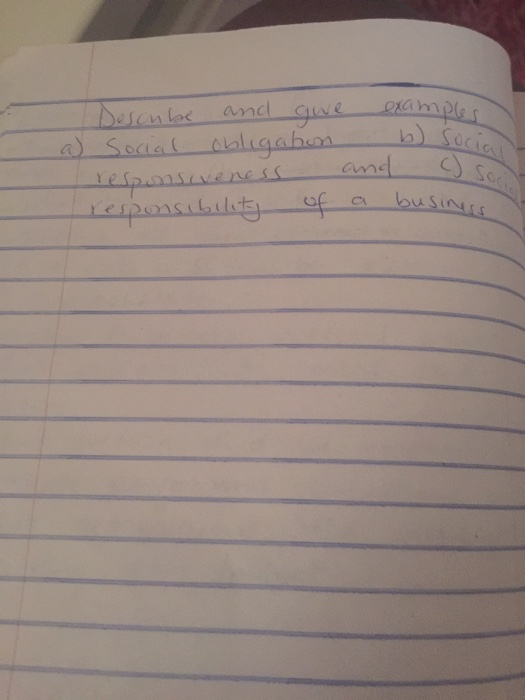 Describe and give examples
a) Social obligation b) Social
responsiveness and c) Social
responsibility of a business